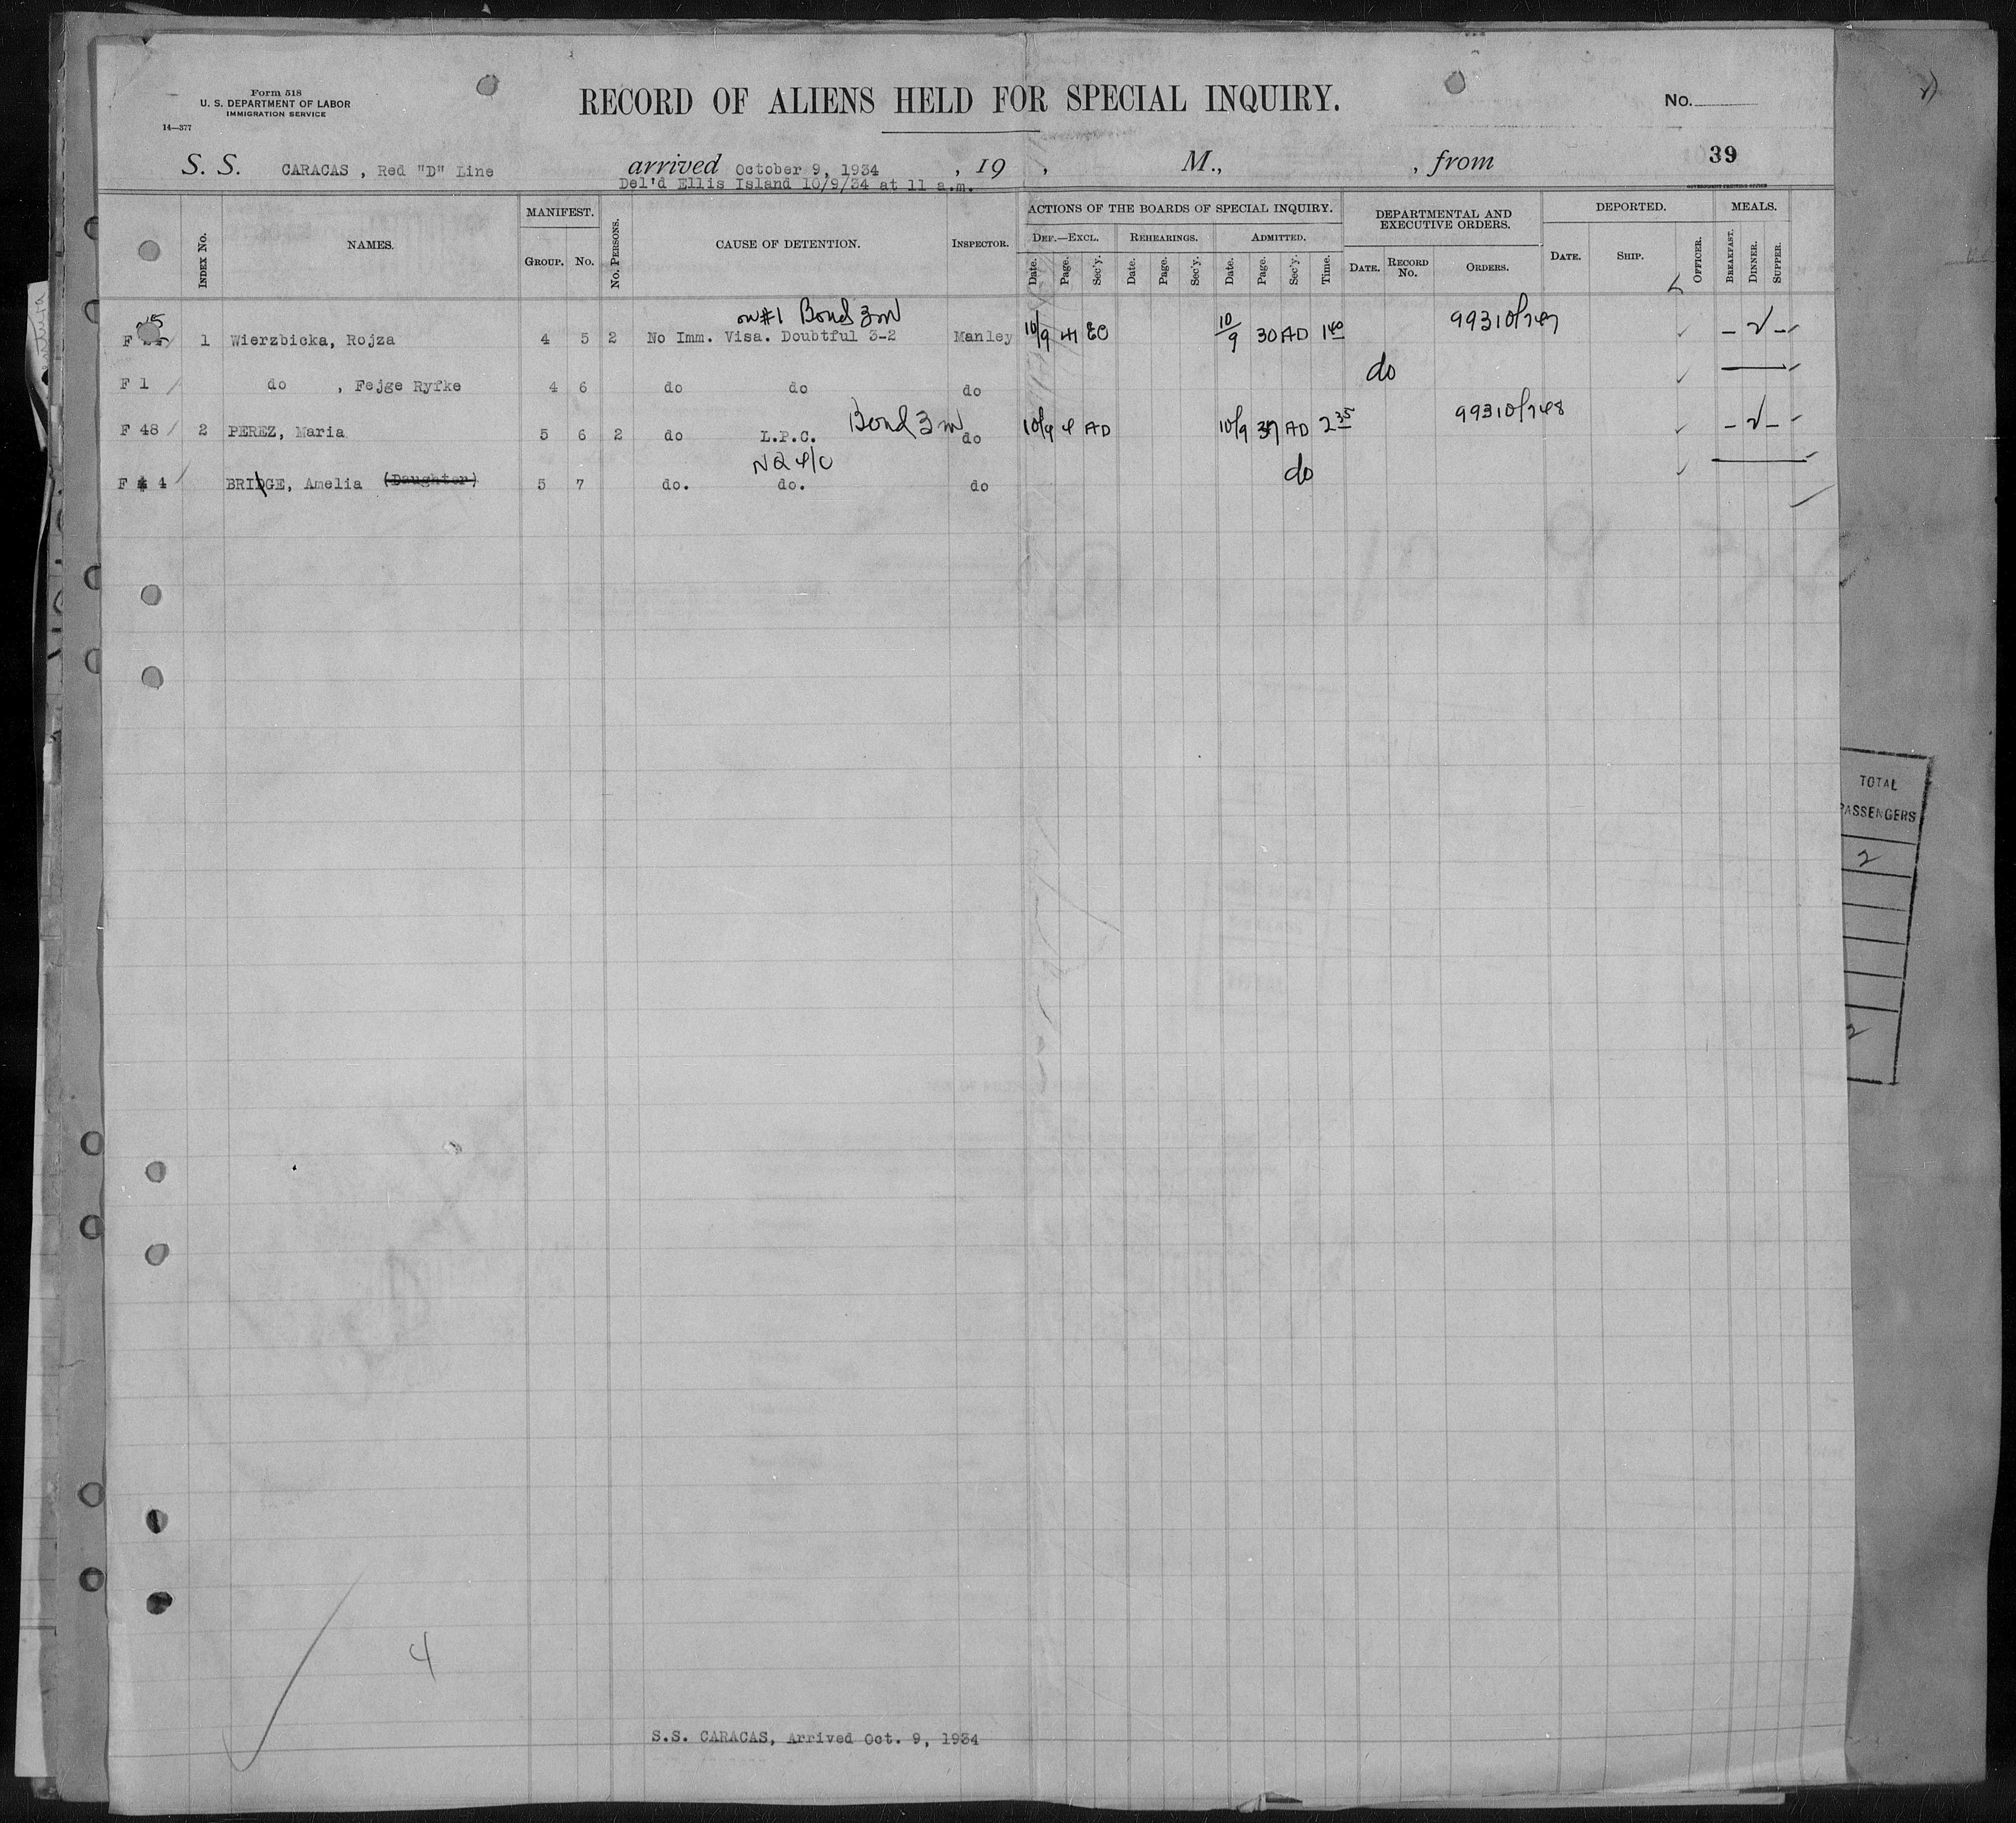 Form 518
U. S. DEPARTMENT OF LABOR
IMMIGRATION SERVICE
14—377
RECORD OF ALIENS HELD FOR SPECIAL INQUIRY.
No.
39
S. S. CARACAS, Red "D" Line arrived October 9, 1934, 19 , M., , from
Del'd Ellis Island 10/9/34 at 11 a.m.
GOVERNMENT PRINTING OFFICE
INDEX No. NAMES. MANIFEST. GROUP. No. No. PERSONS. CAUSE OF DETENTION. INSPECTOR. ACTIONS OF THE BOARDS OF SPECIAL INQUIRY. DEPARTMENTAL AND EXECUTIVE ORDERS. DEPORTED. MEALS.
DEF.—EXCL. REHEARINGS. ADMITTED.
Date. Page. Sec'y. Date. Page. Sec'y. Date. Page. Sec'y. Time. DATE. RECORD No. ORDERS. DATE. SHIP. OFFICER. BREAKFAST. DINNER. SUPPER.
on #1 Bond 3m
F 1 Wierzbicka, Rojza 4 5 2 No Imm. Visa. Doubtful 3-2 Manley 10/9 41 EC 10/9 30 AD 1 40 99310/747 – 2 –
do
F 1 do , Fejge Ryfke 4 6 do do do
Bond 3m
F 48 2 PEREZ, Maria 5 6 2 do L.P.C. do 10/9 4 AD 10/9 37 AD 2 35 99310/748 – 2 –
F 4 BRIDGE, Amelia (Daughter) 5 7 do. do. do do
4
S.S. CARACAS, Arrived Oct. 9, 1934
TOTAL
PASSENGERS
2
2